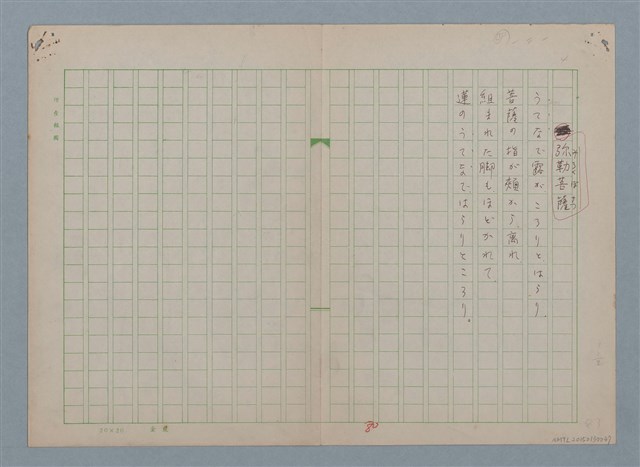 弥勒菩薩
うてなで露がころりとはらり、
菩薩の指が頬から離れ
組まれた脚もほどかれて、
蓮のうてなではらりところり。
20×20